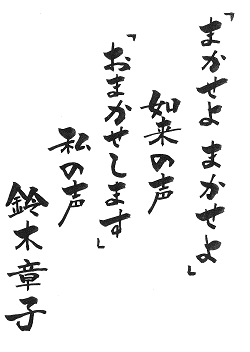 「まかせよ まかせよ」
如来の声
「おまかせします」
私の声
鈴木章子